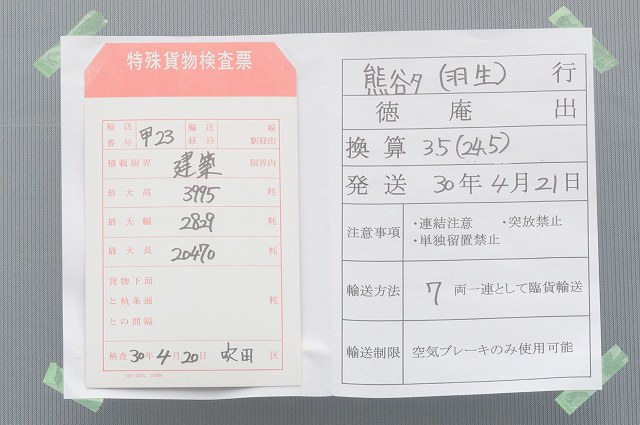 特殊貨物検査票
輸送番号 甲23 輸送経路 線 駅経由
積載限界 建築 限界内
最大高 3995 粍
最大幅 2829 粍
最大長 20470 粍
貨物下面
と軌条面 粍
との間隔
検査 30年4月20日 吹田 区
熊谷タ (羽生) 行
徳庵 出
換算 3.5(24.5)
発送 30年4月21日
注意事項 ・連結注意 ・突放禁止
・単独留置禁止
輸送方法 7 両一連として臨貨輸送
輸送制限 空気ブレーキのみ使用可能